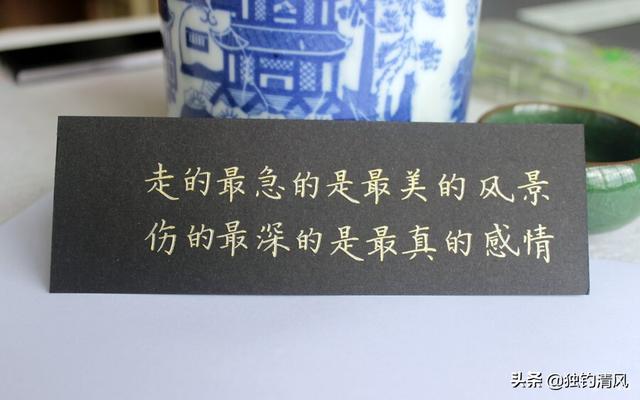 走的最急的是最美的风景
伤的最深的是最真的感情
头条 @独钓清风